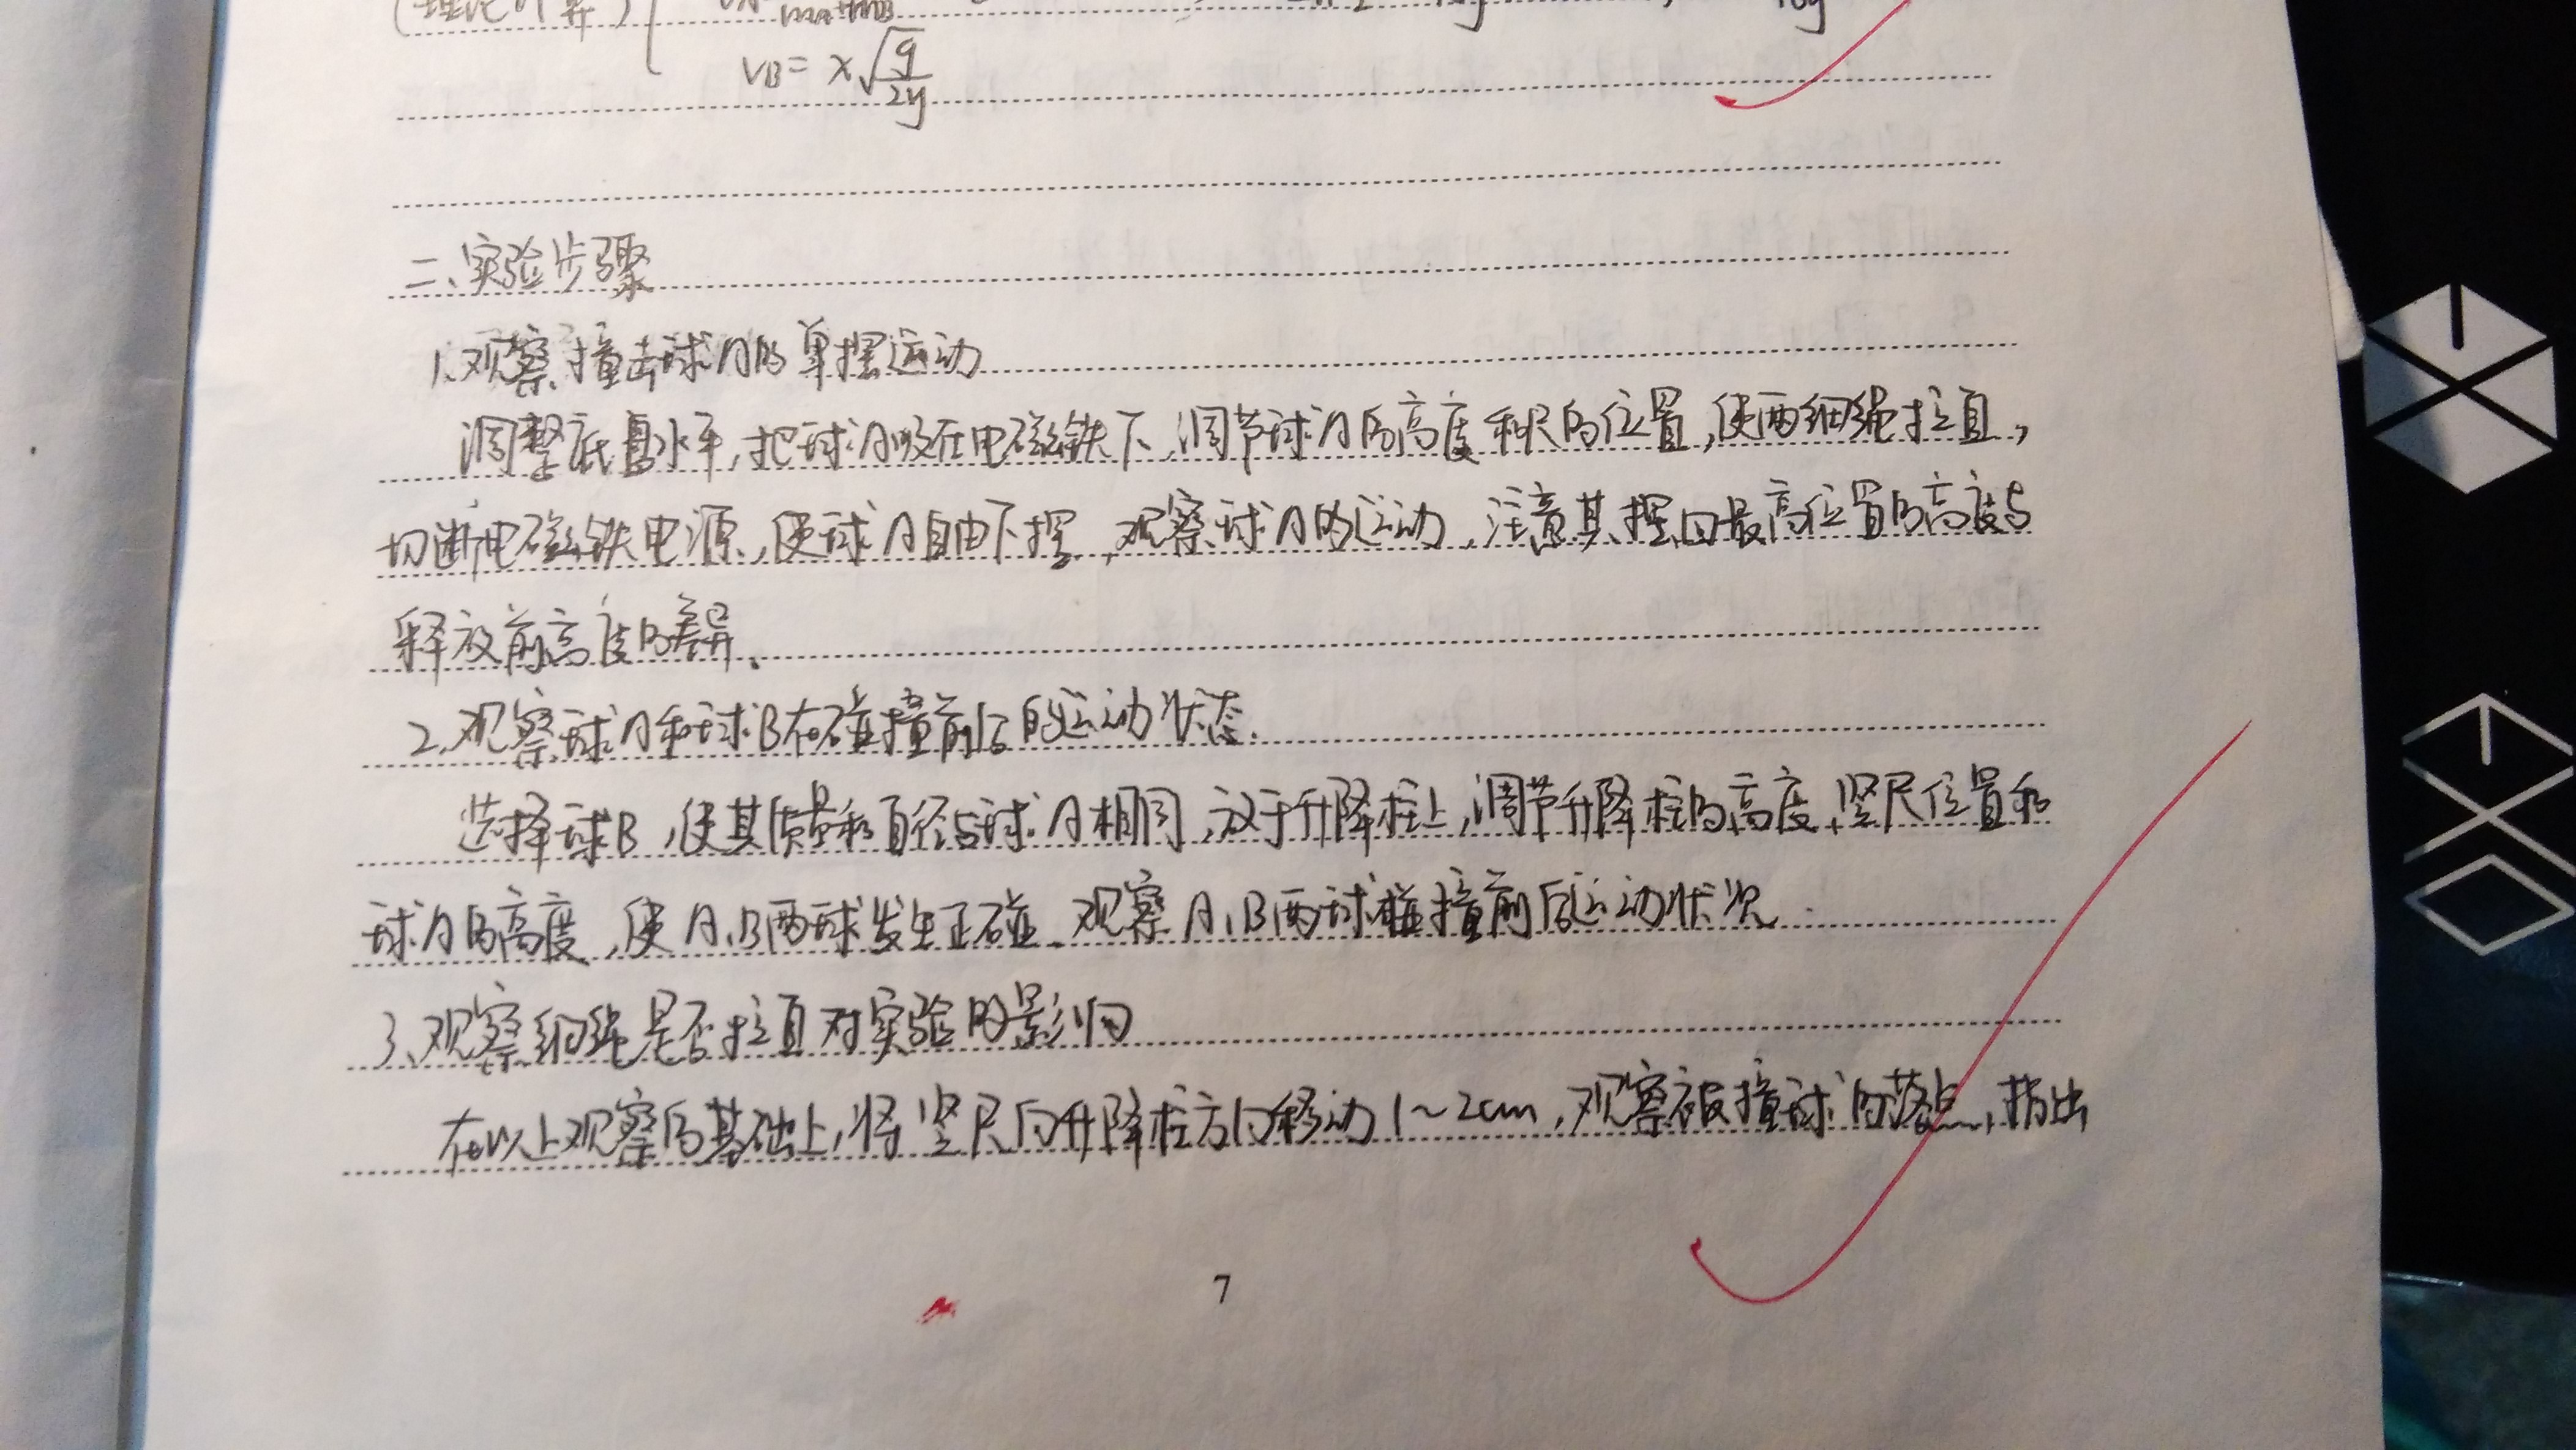 (理论计算)
vB = x√(g/2y)
二、实验步骤
1.观察撞击球A的单摆运动
调整底盘水平,把球A吸在电磁铁下,调节球A的高度和尺的位置,使两细绳拉直,
切断电磁铁电源,使球A自由下摆,观察球A的运动,注意其摆回最高位置的高度与
释放前高度的差异.
2.观察球A和球B在碰撞前后的运动状态.
选择球B,使其质量和直径与球A相同,放于升降柱上,调节升降柱的高度、竖尺位置和
球A的高度,使A、B两球发生正碰.观察A、B两球碰撞前后运动状况.
3、观察细绳是否拉直对实验的影响
在以上观察的基础上,将竖尺向升降柱方向移动1~2cm,观察被撞球的落点,指出
7